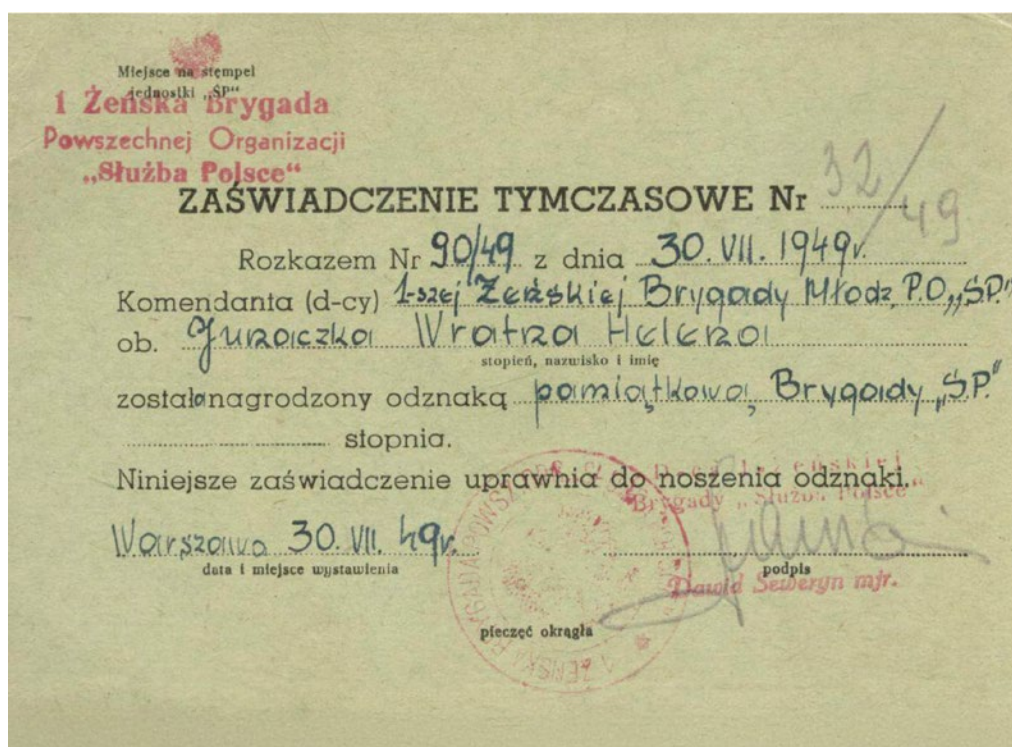 Miejsce na stempel
jednostki „ŚP“
1 Żeńska Brygada
Powszechnej Organizacji
„Służba Polsce“
ZAŚWIADCZENIE TYMCZASOWE Nr 32/49
Rozkazem Nr 90/49 z dnia 30. VII. 1949r.
Komendanta (d-cy) 1-szej Żeńskiej Brygady Młodz. P.O. „ŚP.”
ob. Junaczka Wratna Helena
stopień, nazwisko i imię
została nagrodzony odznaką pamiątkową Brygady „ŚP.”
stopnia.
Niniejsze zaświadczenie uprawnia do noszenia odznaki.
Żeńskiej
Brygady „Służba Polsce“
Warszawa 30. VII. 49r.
data i miejsce wystawienia
podpis
Dawid Seweryn mjr.
pieczęć okrągła